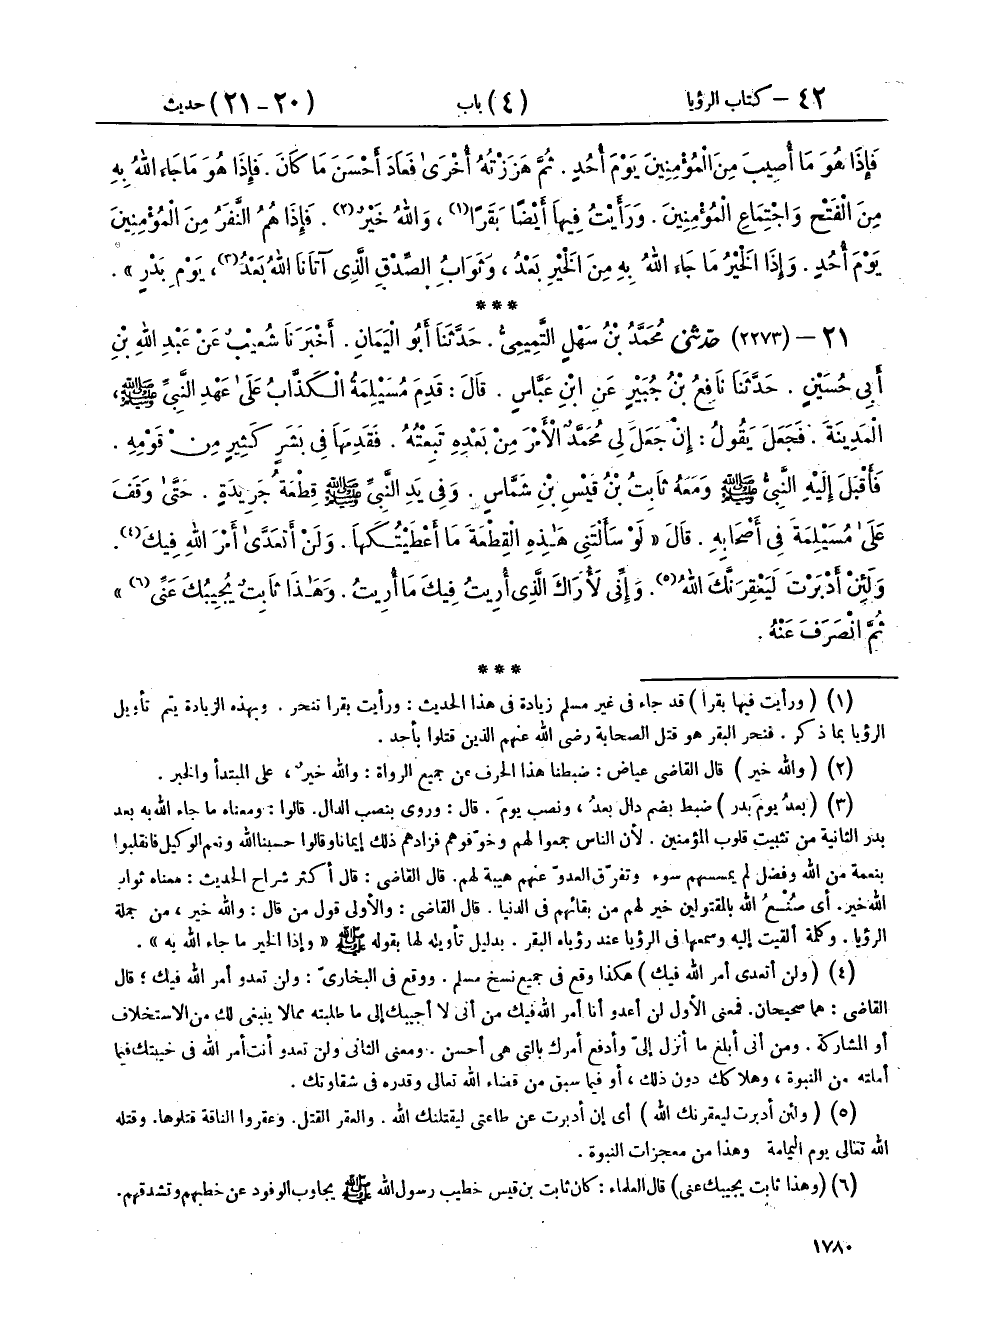 ٤٢ – كتاب الرؤيا (٤) باب (٢٠ – ٢١) حديث
فَإِذَا هُوَ مَا أُصِيبَ مِنَ الْمُؤْمِنِينَ يَوْمَ أُحُدٍ . ثُمَّ هَزَزْتُهُ أُخْرَىٰ فَعَادَ أَحْسَنَ مَا كَانَ . فَإِذَا هُوَ مَا جَاءَ اللهُ بِهِ
مِنَ الْفَتْحِ وَاجْتِمَاعِ الْمُؤْمِنِينَ . وَرَأَيْتُ فِيهَا أَيْضًا بَقَرًا(١) ، وَاللهُ خَيْرٌ(٢) . فَإِذَا هُمُ النَّفَرُ مِنَ الْمُؤْمِنِينَ
يَوْمَ أُحُدٍ . وَإِذَا الْخَيْرُ مَا جَاءَ اللهُ بِهِ مِنَ الْخَيْرِ بَعْدُ ، وَثَوَابُ الصِّدْقِ الَّذِى آتَانَا اللهُ بَعْدُ(٣)، يَوْمَ بَدْرٍ » .
***
٢١ – (٢٢٧٣) حَدَّثَنِى مُحَمَّدُ بْنُ سَهْلٍ التَّمِيمِىُّ . حَدَّثَنَا أَبُو الْيَمَانِ . أَخْبَرَنَا شُعَيْبٌ عَنْ عَبْدِ اللهِ بْنِ
أَبِى حُسَيْنٍ . حَدَّثَنَا نَافِعُ بْنُ جُبَيْرٍ عَنِ ابْنِ عَبَّاسٍ . قَالَ : قَدِمَ مُسَيْلِمَةُ الْكَذَّابُ عَلَىٰ عَهْدِ النَّبِىِّ ﷺ ،
الْمَدِينَةَ . فَجَعَلَ يَقُولُ : إِنْ جَعَلَ لِى مُحَمَّدٌ الْأَمْرَ مِنْ بَعْدِهِ تَبِعْتُهُ . فَقَدِمَهَا فِى بَشَرٍ كَثِيرٍ مِنْ قَوْمِهِ .
فَأَقْبَلَ إِلَيْهِ النَّبِىُّ ﷺ وَمَعَهُ ثَابِتُ بْنُ قَيْسِ بْنِ شَمَّاسٍ . وَفِى يَدِ النَّبِىِّ ﷺ قِطْعَةُ جَرِيدَةٍ . حَتَّىٰ وَقَفَ
عَلَىٰ مُسَيْلِمَةَ فِى أَصْحَابِهِ . قَالَ « لَوْ سَأَلْتَنِى هَٰذِهِ الْقِطْعَةَ مَا أَعْطَيْتُكَهَا . وَلَنْ أَتَعَدَّىٰ أَمْرَ اللهِ فِيكَ(٤) .
وَلَئِنْ أَدْبَرْتَ لَيَعْقِرَنَّكَ اللهُ(٥) . وَإِنِّى لَأُرَاكَ الَّذِى أُرِيتُ فِيكَ مَا أُرِيتُ . وَهَٰذَا ثَابِتٌ يُجِيبُكَ عَنِّى (٦) »
ثُمَّ انْصَرَفَ عَنْهُ .
***
(١) ( ورأيت فيها بقرا ) قد جاء فى غير مسلم زيادة فى هذا الحديث : ورأيت بقرا تنحر . وبهذه الزيادة يتم تأويل
الرؤيا بما ذكر . فنحر البقر هو قتل الصحابة رضى الله عنهم الذين قتلوا بأحد .
(٢) ( والله خير ) قال القاضى عياض : ضبطنا هذا الحرف عن جميع الرواة : والله خيرٌ ، على المبتدأ والخبر .
(٣) ( بعدُ يومَ بدر ) ضبط بضم دال بعدُ ، ونصب يومَ . قال : وروى بنصب الدال. قالوا : ومعناه ما جاء الله به بعد
بدر الثانية من تثبيت قلوب المؤمنين . لأن الناس جمعوا لهم وخوّفوهم فزادهم ذلك إيمانا وقالوا حسبنا الله ونعم الوكيل فانقلبوا
بنعمة من الله وفضل لم يمسسهم سوء وتفرّق العدوّ عنهم هيبة لهم. قال القاضى : قال أكثر شراح الحديث : معناه ثواب
الله خير. أى صُنْعُ الله بالمقتولين خير لهم من بقائهم فى الدنيا . قال القاضى : والأولى قول من قال : والله خير ، من جملة
الرؤيا . وكلمة ألقيت إليه وسمعها فى الرؤيا عند رؤياه البقر . بدليل تأويله لها بقوله ﷺ « وإذا الخير ما جاء الله به » .
(٤) ( ولن أتعدى أمر الله فيك ) هكذا وقع فى جميع نسخ مسلم . ووقع فى البخارىّ : ولن تعدو أمر الله فيك ؛ قال
القاضى : هما صحيحان. فمعنى الأول لن أعدو أنا أمر الله فيك من أنى لا أجيبك إلى ما طلبته مما لا ينبغى لك من الاستخلاف
أو المشاركة . ومن أنى أبلغ ما أنزل إلىّ وأدفع أمرك بالتى هى أحسن . ومعنى الثانى ولن تعدو أنت أمر الله فى خيبتك فيما
أملته من النبوة ، وهلاكك دون ذلك ، أو فيما سبق من قضاء الله تعالى وقدره فى شقاوتك .
(٥) ( ولئن أدبرت ليعقرنك الله ) أى إن أدبرت عن طاعتى ليقتلنك الله . والعقر القتل. وعقروا الناقة قتلوها. وقتله
الله تعالى يوم اليمامة وهذا من معجزات النبوة .
(٦) (وهذا ثابت يجيبك عنى) قال العلماء : كان ثابت بن قيس خطيب رسول الله ﷺ يجاوب الوفود عن خطبهم وتشدقهم.
١٧٨٠